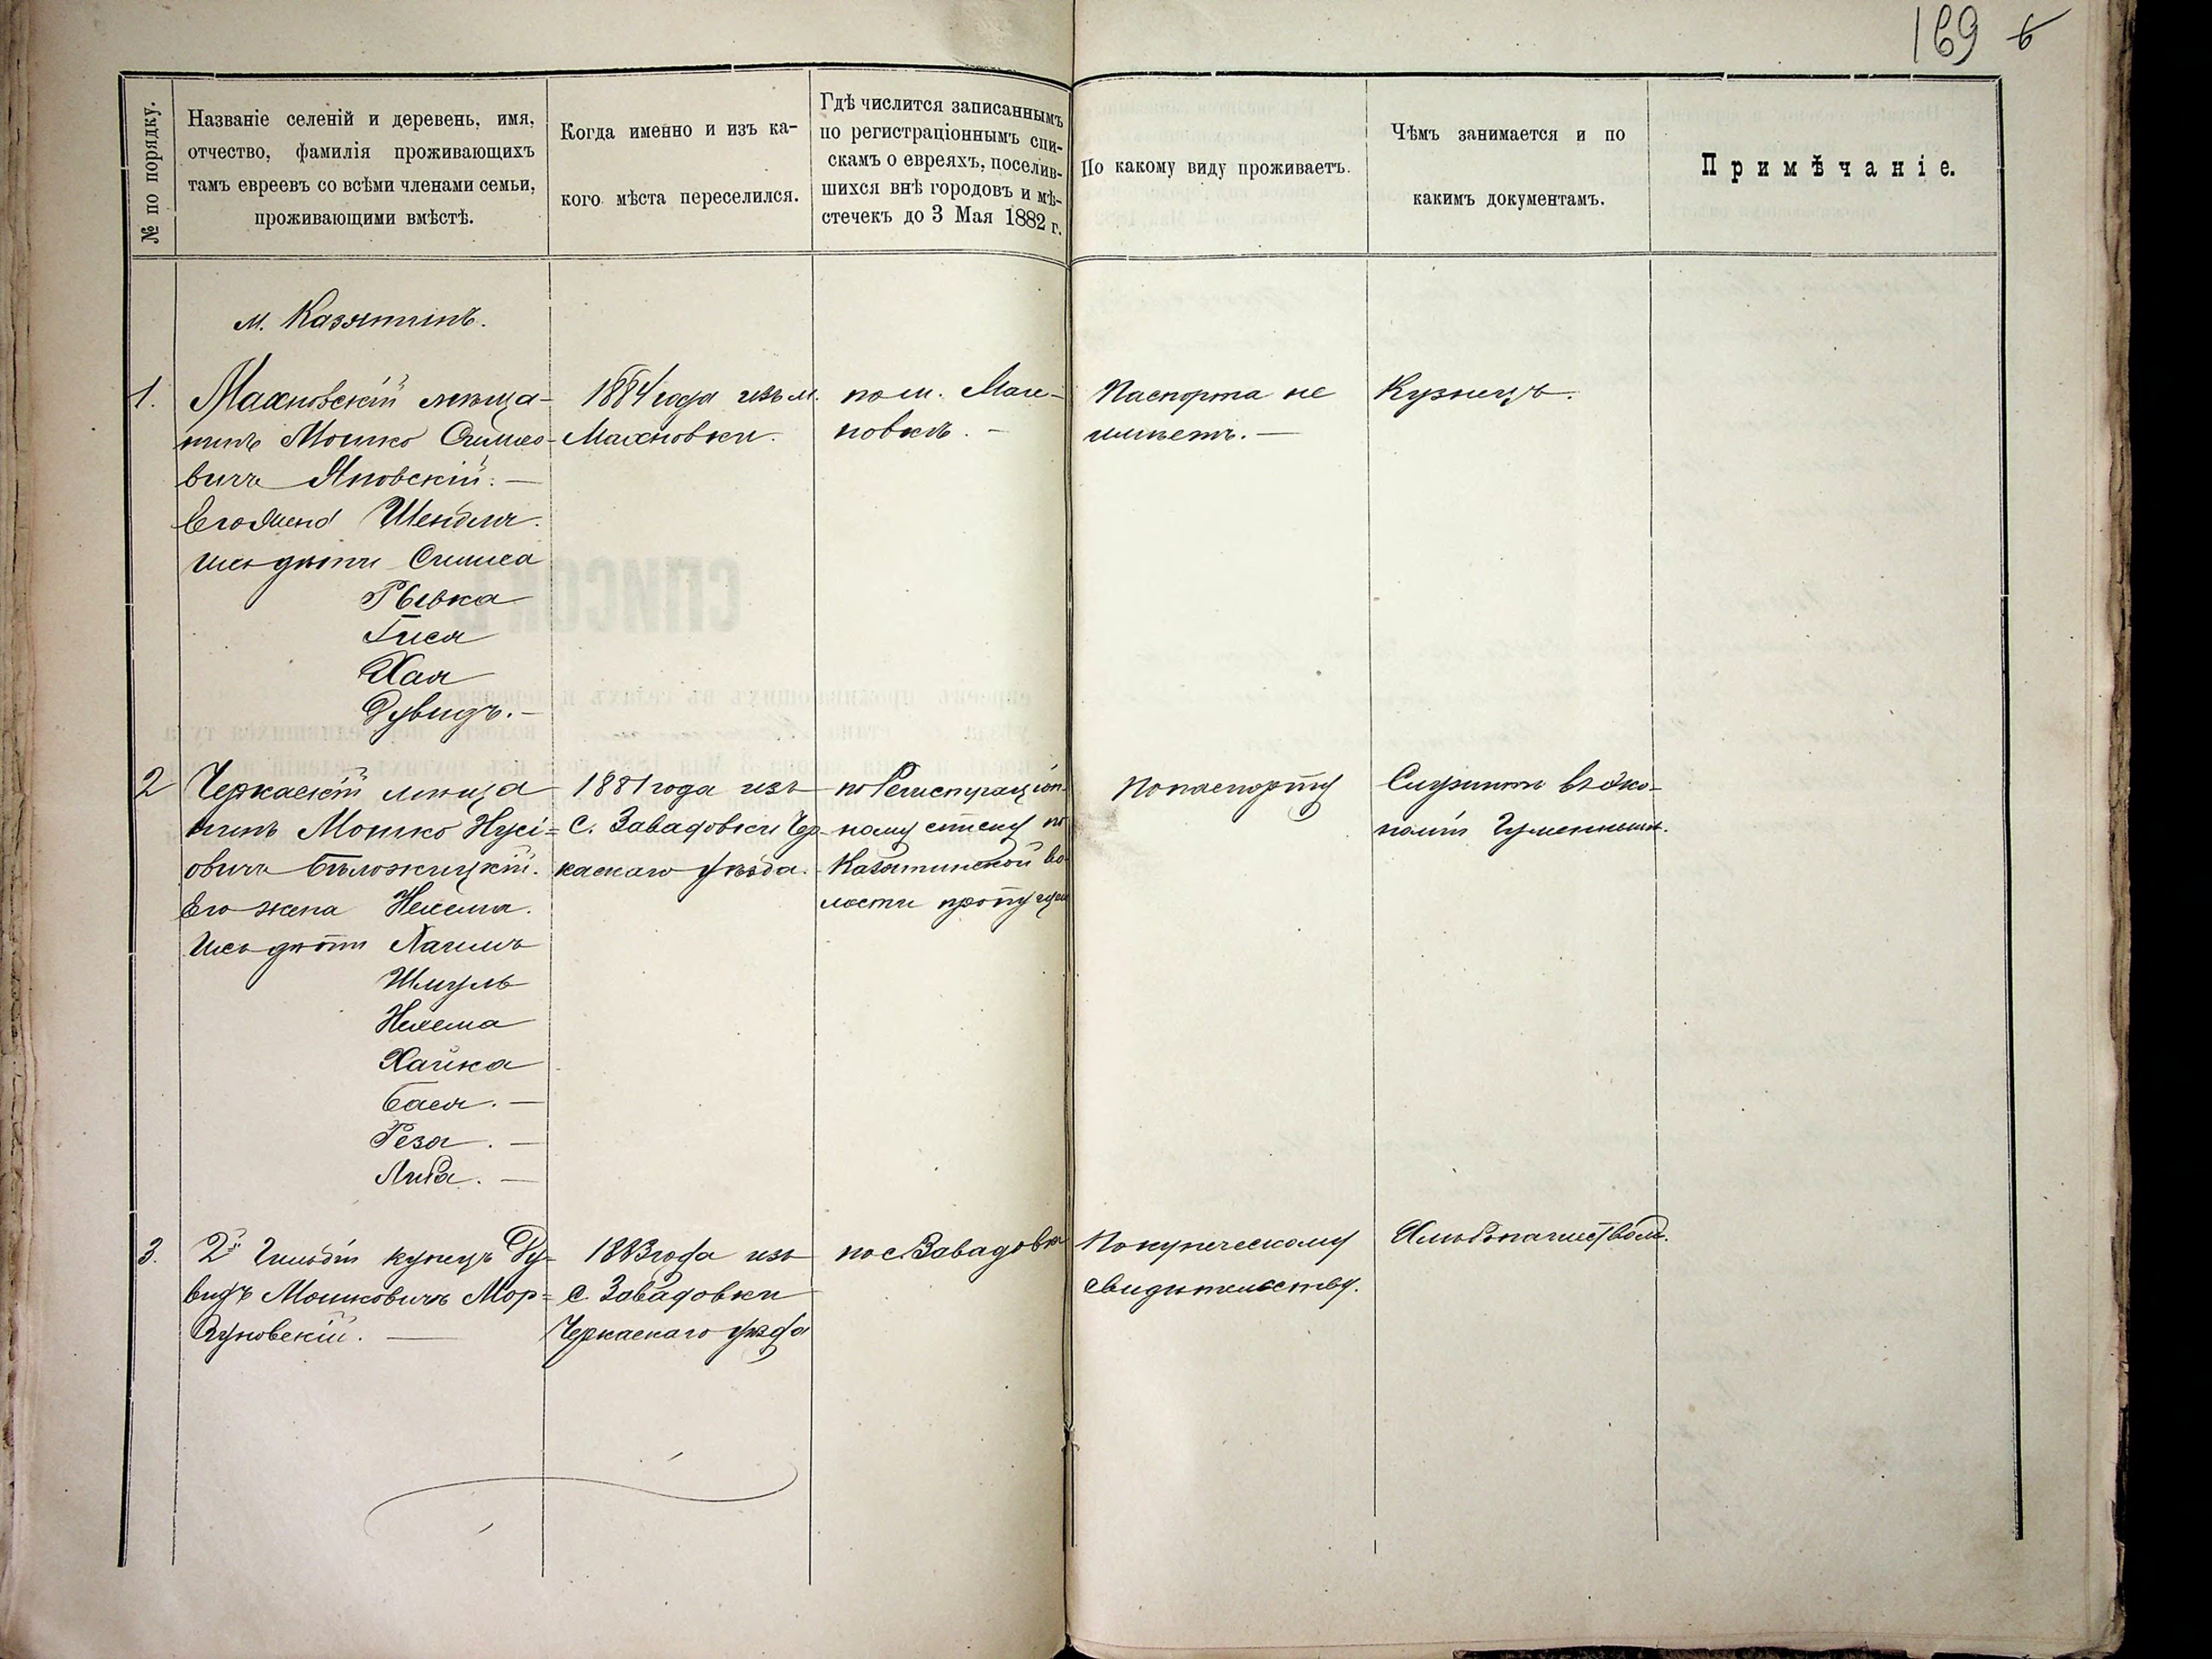 169 6
№ по порядку.
Названіе селеній и деревень, имя,
отчество, фамилія проживающихъ
тамъ евреевъ со всѣми членами семьи,
проживающими вмѣстѣ.
Когда именно и изъ ка-
кого мѣста переселился.
Гдѣ числится записаннымъ
по регистраціоннымъ спи-
скамъ о евреяхъ, поселив-
шихся внѣ городовъ и мѣ-
стечекъ до 3 Мая 1882 г.
По какому виду проживаетъ.
Чѣмъ занимается и по
какимъ документамъ.
Примѣчаніе.
м. Казятинъ.
1.
Махновскій мѣща-
нинъ Мошко Симхо-
вичъ Яновскій. —
Его жена Шендля.
Ихъ дѣти Симха
Рывка
Гися
Хая
Дувидъ. —
1884 года изъ м.
Махновки.
по м. Мах-
новкѣ. —
Паспорта не
имѣетъ. —
Кузнецъ.
2
Черкаскій мѣща
нинъ Мошко Нусі=
овичъ Бѣложицкій.
Его жена Нехема.
Ихъ дѣти Лачимъ
Шмуль
Нехема
Хайка
Бася. —
Реза. —
Либа. —
1881 года изъ
с. Завадовки Чер-
каскаго уѣзда.
по Регистраціон-
ному списку по
Казятинской во-
лости
По паспорту
Служитъ въ эко-
номіи
3.
2й Гильдіи купецъ Ду-
видъ Мошковичъ Мор=
гуновскій. —
1883 года изъ
с. Завадовки
Черкаскаго уѣзда
по с Завадовкѣ
По купеческому
свидѣтельству.
Хлѣбопашествомъ.